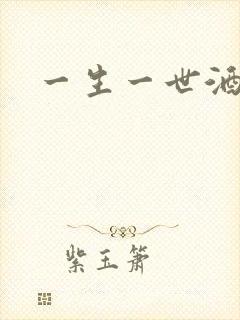 一生一世酒
紫玉箫